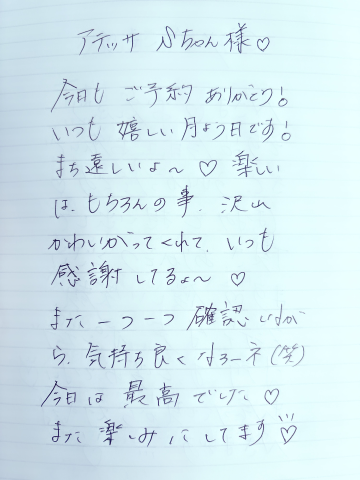 アテッサ Sちゃん様♡
今日も ご予約 ありがとう!
いつも 嬉しい 月よう日です!
まち遠しいよ〜 ♡ 楽しい
は、もちろんの事、沢山
かわいがってくれて、いつも
感謝 してるよ〜 ♡
また 一つ一つ 確認しなが
ら、気持ち良くなろーネ(笑)
今日は 最高 でした ♡
また 楽しみにしてます♡